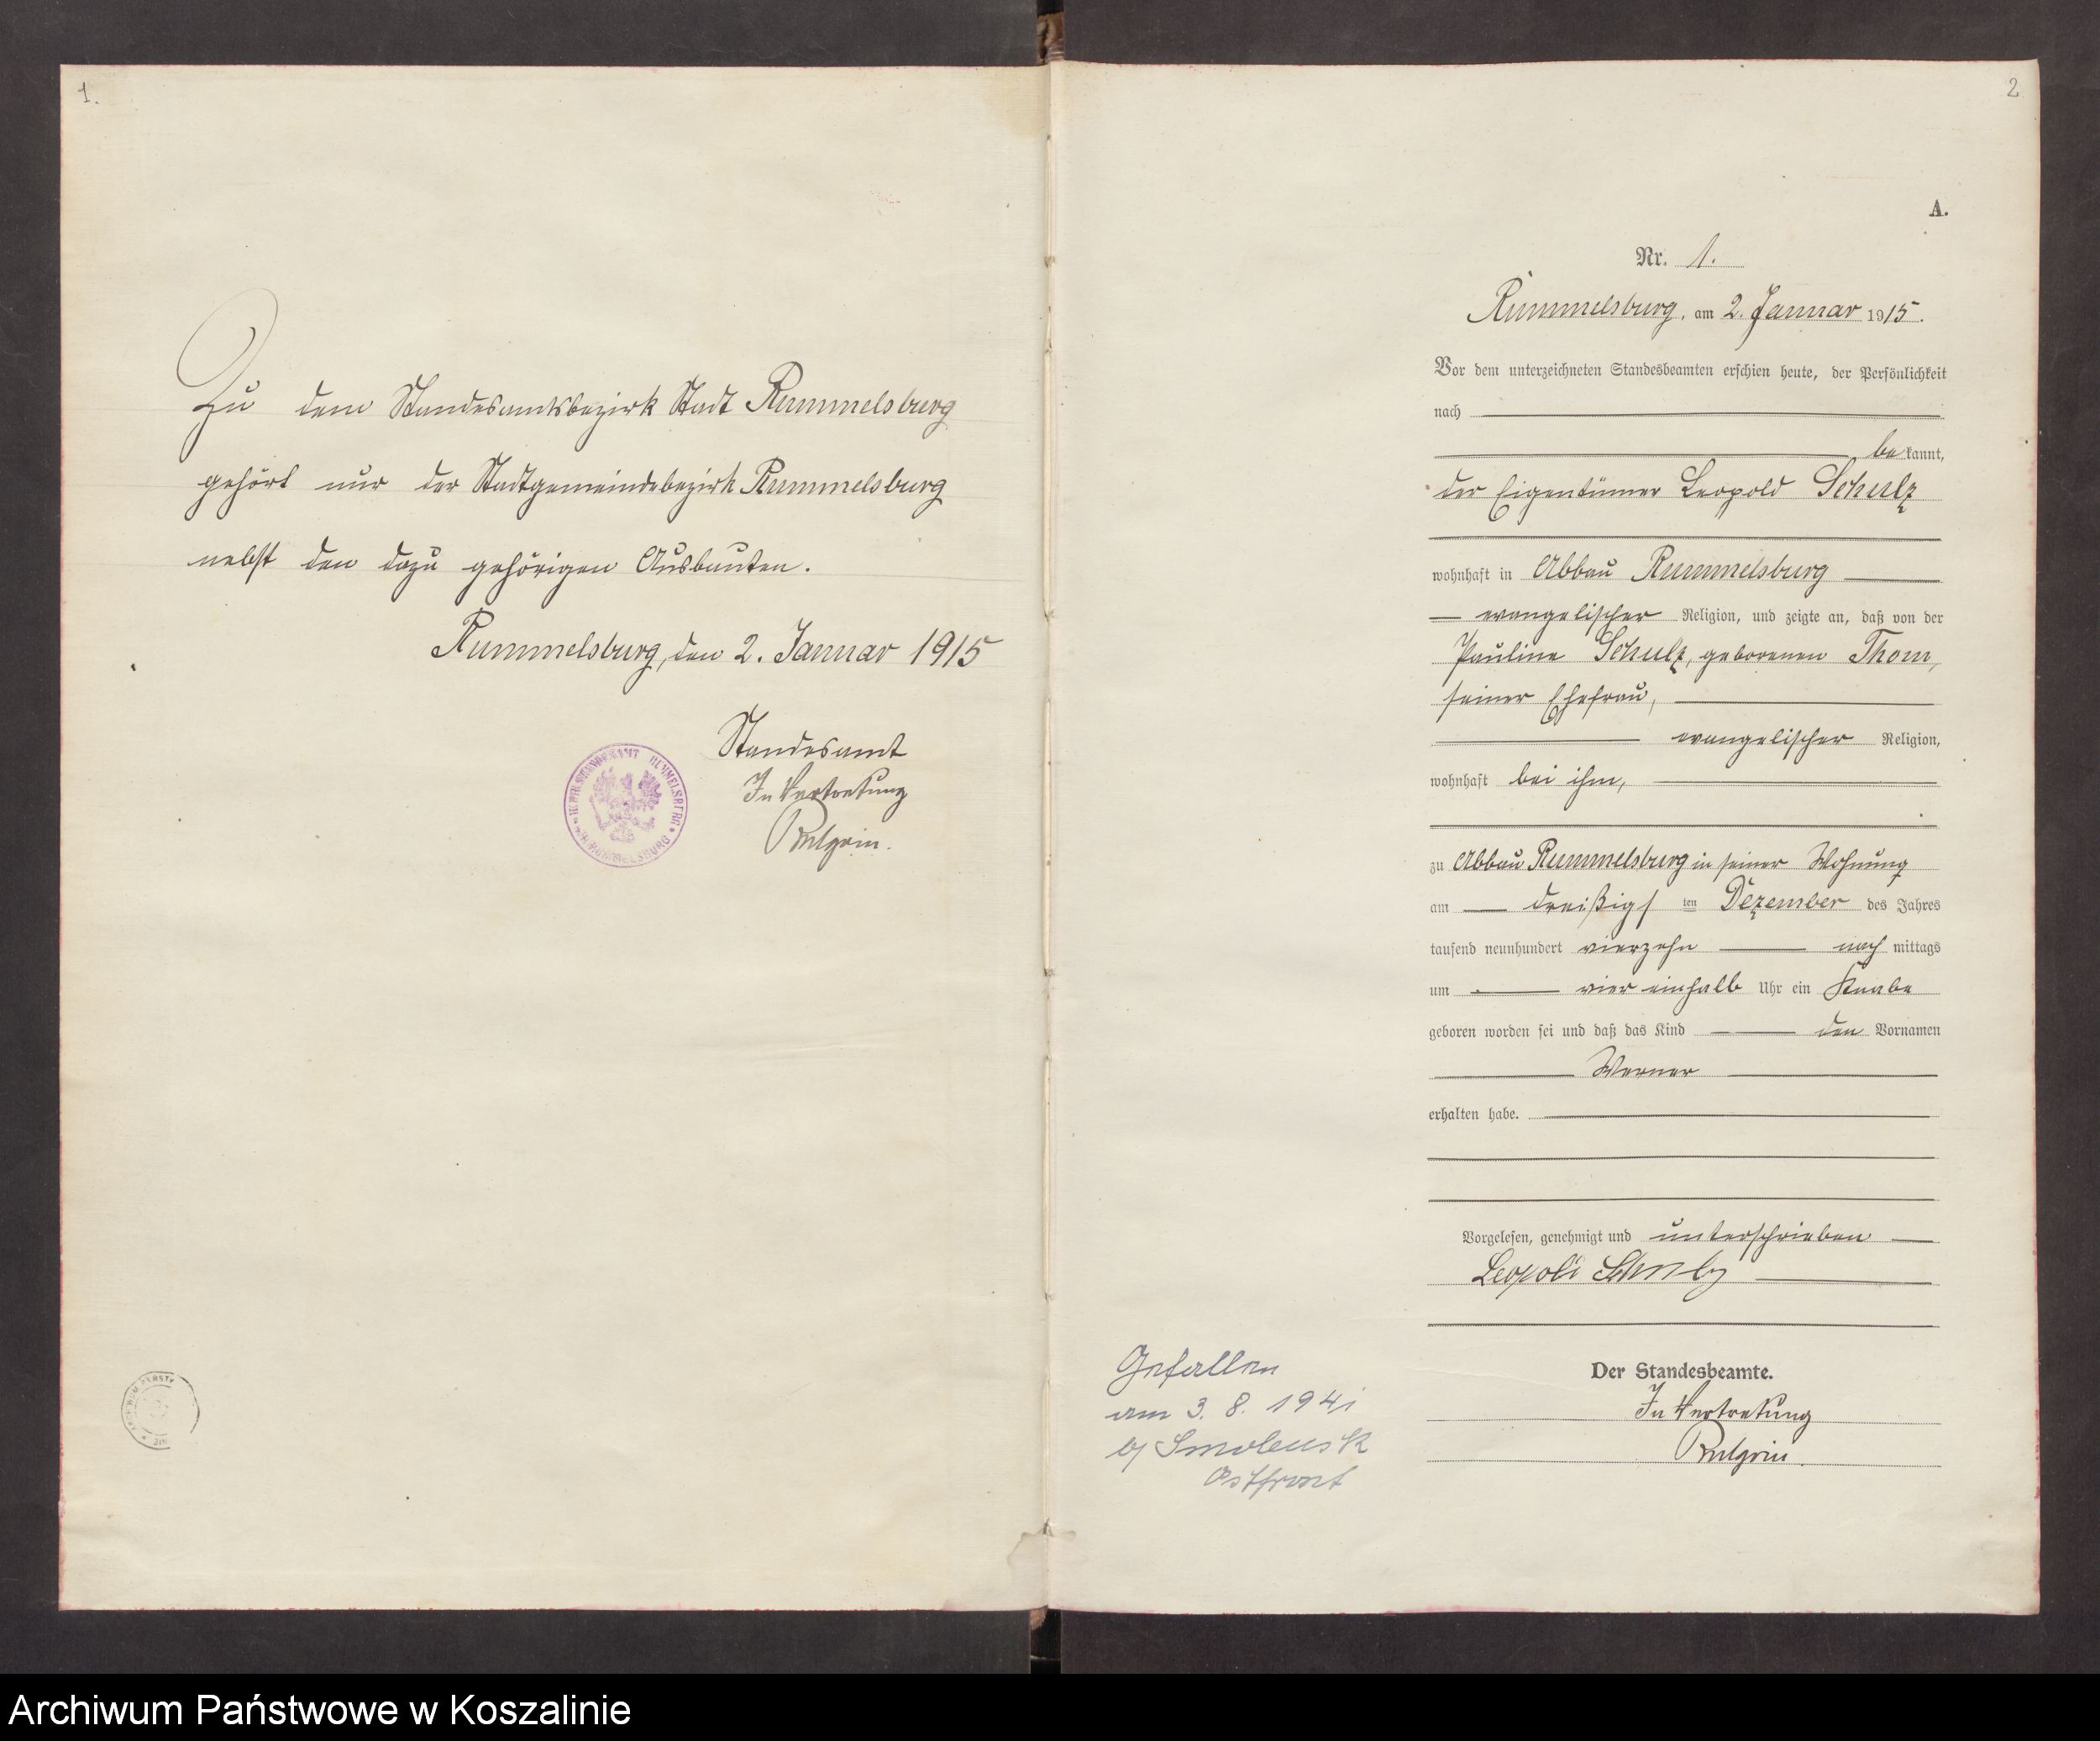 1.
Zu dem Standesamtsbezirk Stadt Rummelsburg
gehört nur der Stadtgemeindebezirk Rummelsburg
nebst den dazu gehörigen Ausbauten.
Rummelsburg, den 2. Januar 1915
Standesamt
In Vertretung
2
A.
Nr. 1.
Rummelsburg, am 2. Januar 1915.
Vor dem unterzeichneten Standesbeamten erschien heute, der Persönlichkeit
nach
bekannt,
der Eigentümer Leopold Schulz
wohnhaft in Abbau Rummelsburg
evangelischer Religion, und zeigte an, daß von der
Pauline Schulz, geborenen Thom,
seiner Ehefrau,
evangelischer Religion,
wohnhaft bei ihm,
zu Abbau Rummelsburg in seiner Wohnung
am dreißigsten Dezember des Jahres
tausend neunhundert vierzehn nachmittags
um vier einhalb Uhr ein Knabe
geboren worden sei und daß das Kind den Vornamen
Werner
erhalten habe.
Vorgelesen, genehmigt und unterschrieben
Leopold Schulz
Der Standesbeamte.
In Vertretung
Gefallen
am 3. 8. 1941
b/ Smolensk
Ostfront
Archiwum Państwowe w Koszalinie